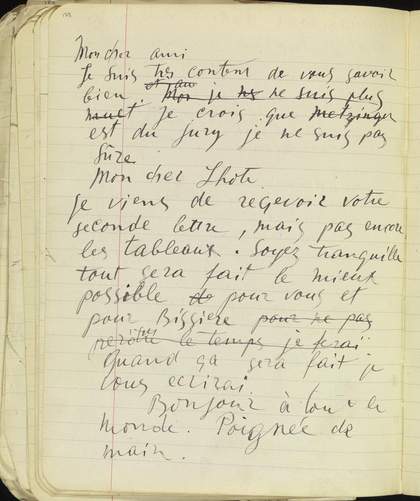 Mon cher ami
Je suis très content de vous savoir
bien. je ne suis plus
je crois que Metzinger
est du Jury je ne suis pas
sûre
Mon cher Lhote
je viens de reçevoir votre
seconde lettre, mais pas encore
les tableaux. Soyez tranquille
tout sera fait le mieux
possible de pour vous et
pour Bissiere pour ne pas
le temps je ferai.
Quand ça sera fait je
vous ecrirai.
Bonjour à tout le
monde. Poignée de
main.